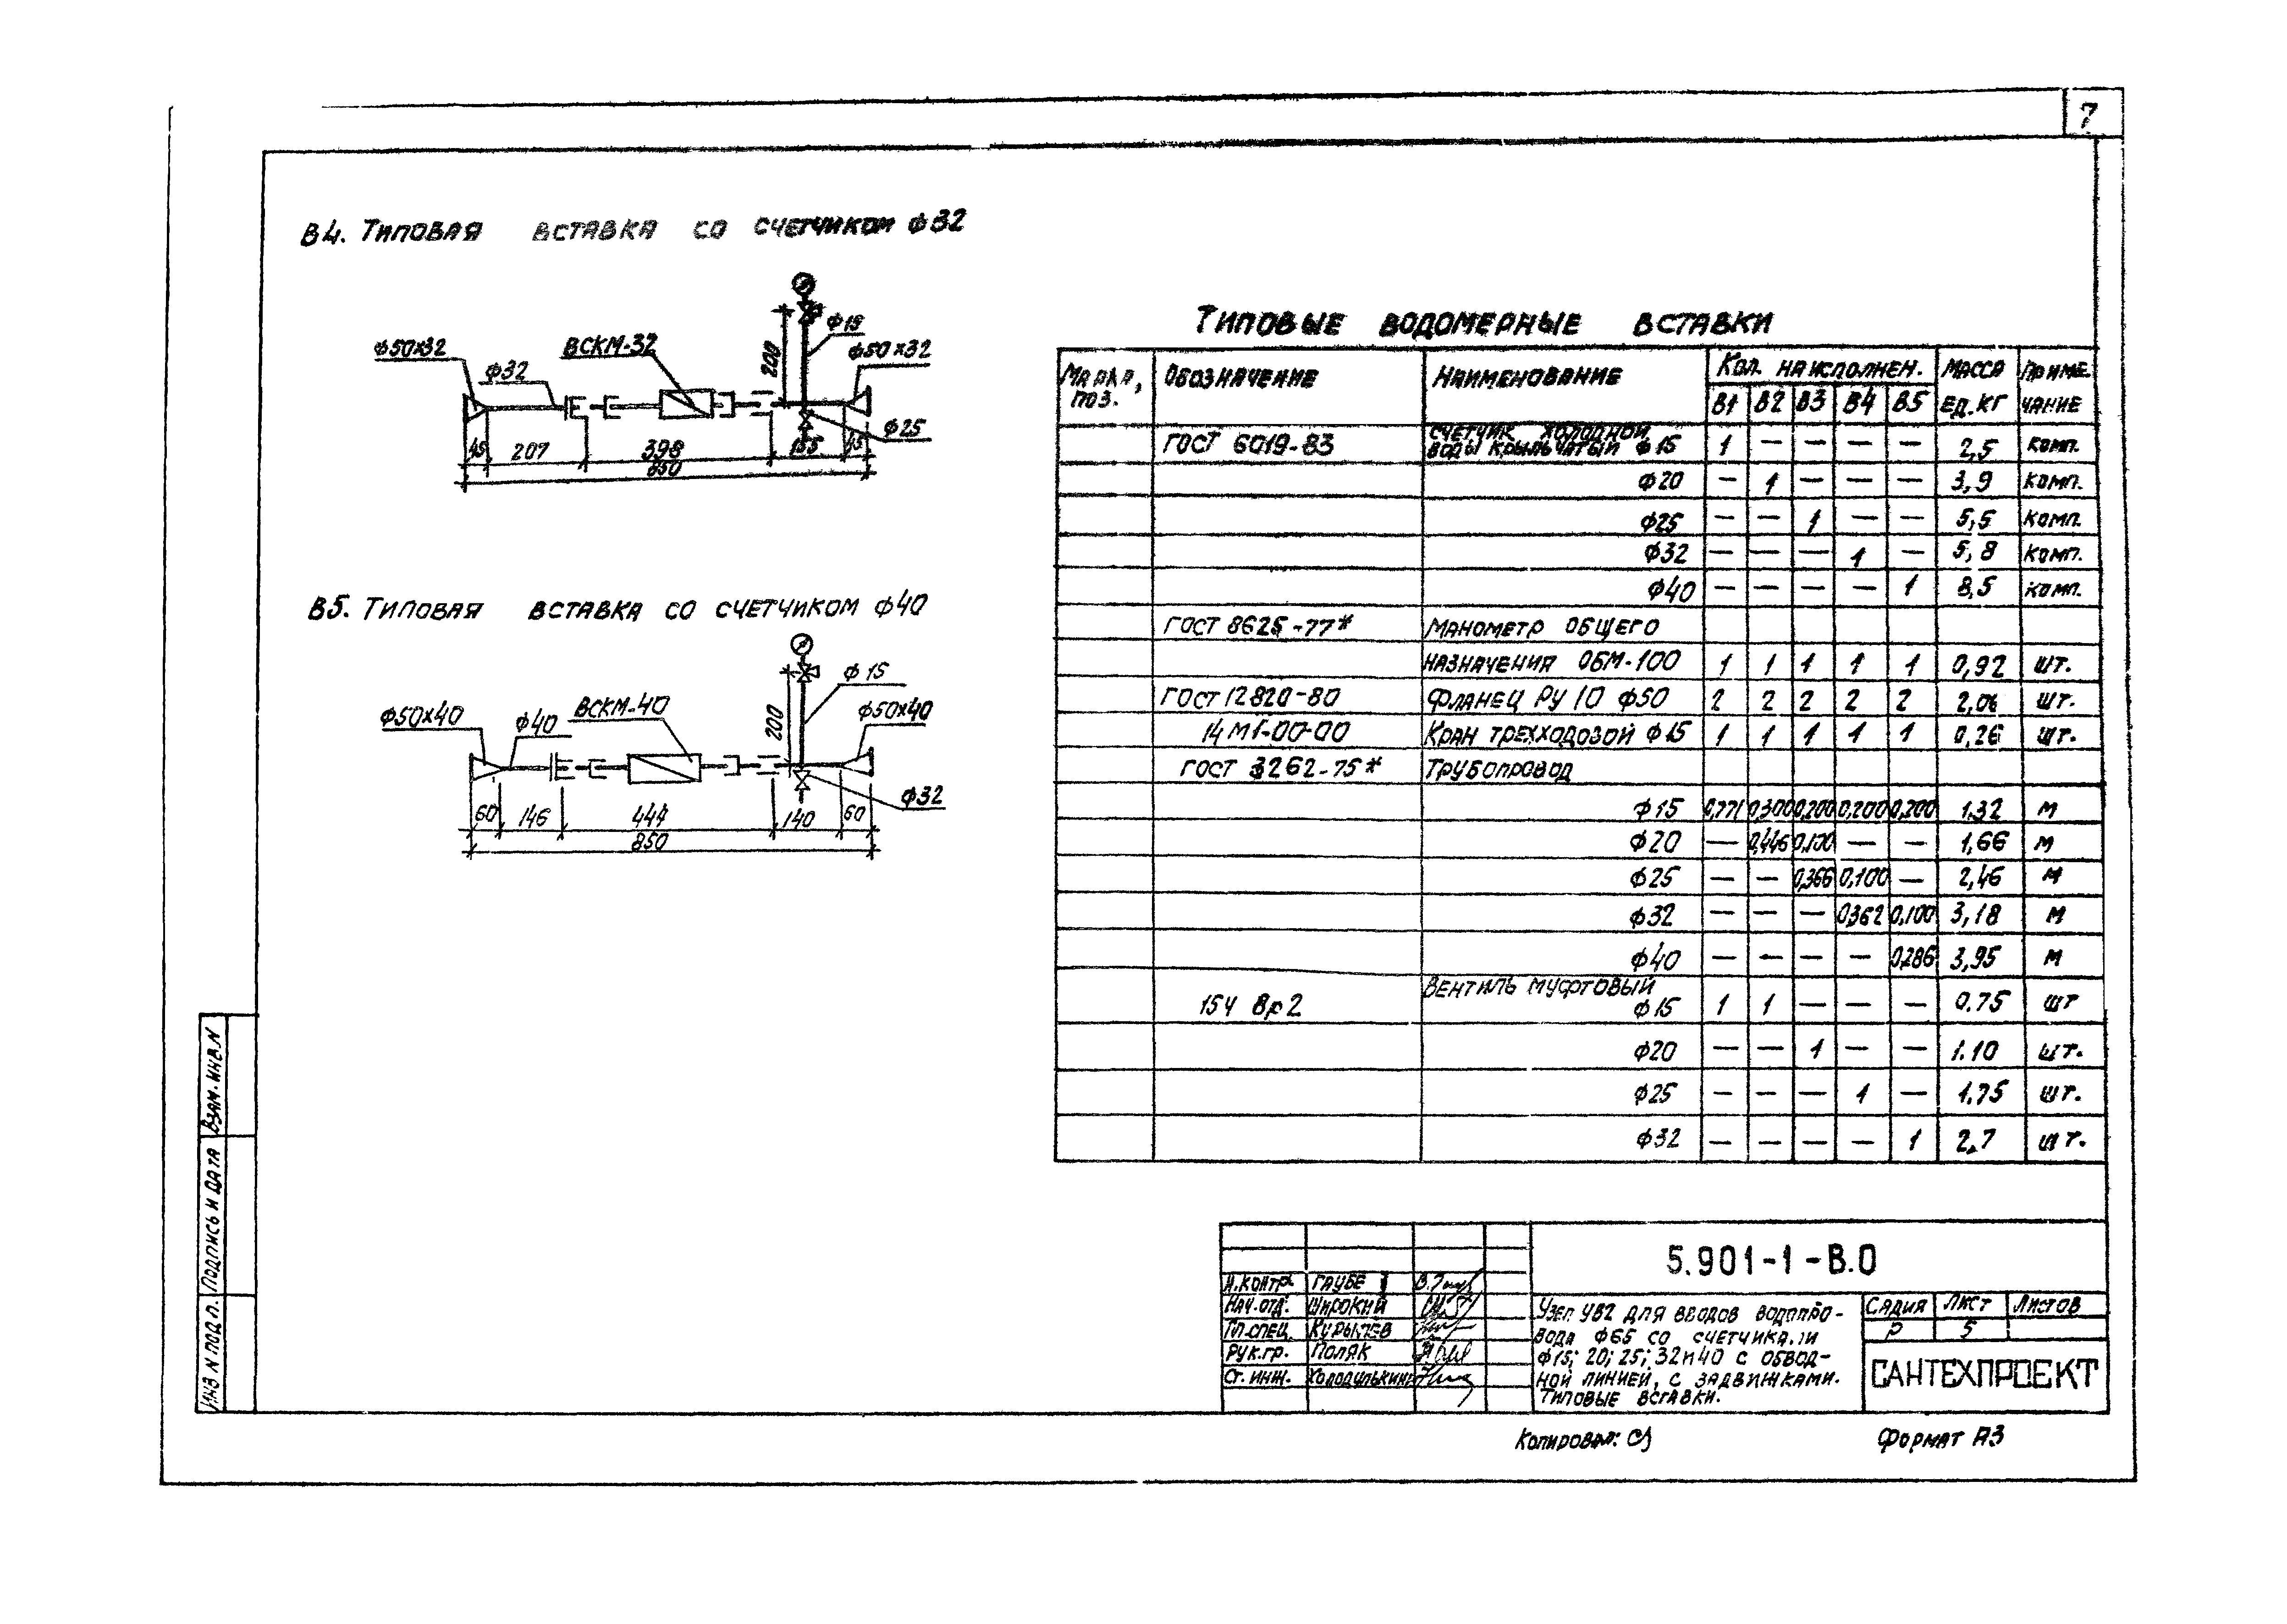 7
В4. Типовая вставка со счетчиком ф32
ф50х32
ф32
ВСКМ-32
200
ф15
ф50х32
ф25
45 207 398 155 45
850
В5. Типовая вставка со счетчиком ф40
ф50х40
ф40
ВСКМ-40
200
ф15
ф50х40
ф32
60 146 444 140 60
850
Типовые водомерные вставки
Марка, поз. Обозначение Наименование Кол. на исполнен. Масса ед.кг Приме-чание
В1 В2 В3 В4 В5
ГОСТ 6019-83 Счетчик холодной воды крыльчатый ф15 1 — — — — 2,5 комп.
ф20 — 1 — — — 3,9 комп.
ф25 — — 1 — — 5,5 комп.
ф32 — — — 1 — 5,8 комп.
ф40 — — — — 1 8,5 комп.
ГОСТ 8625-77* Манометр общего
назначения ОБМ-100 1 1 1 1 1 0,92 шт.
ГОСТ 12820-80 Фланец Ру 10 ф50 2 2 2 2 2 2,06 шт.
14М1-00-00 Кран трехходовой ф15 1 1 1 1 1 0,26 шт.
ГОСТ 3262-75* Трубопровод
ф15 0,771 0,300 0,200 0,200 0,200 1.32 м
ф20 — 0,446 0,100 — — 1,66 м
ф25 — — 0,366 0,100 — 2,46 м
ф32 — — — 0,362 0,100 3,18 м
ф40 — — — — 0,286 3,95 м
15ч 8р2 Вентиль муфтовый ф15 1 1 — — — 0.75 шт
ф20 — — 1 — — 1.10 шт.
ф25 — — — 1 — 1,75 шт.
ф32 — — — — 1 2,7 шт.
Взам. инв.N
Подпись и дата
Инв N подл.
5.901-1-В.0
Н.контр. Гаубе
Нач.отд. Широкий
Гл.спец.
Рук.гр. Поляк
Ст.инж.
Узел УВ2 для вводов водопро-
вода ф65 со счетчиками
ф15; 20; 25; 32 и 40 с обвод-
ной линией, с задвижками.
Типовые вставки.
Садия Лист Листов
Р 5
САНТЕХПРОЕКТ
Копировал:
Формат А3